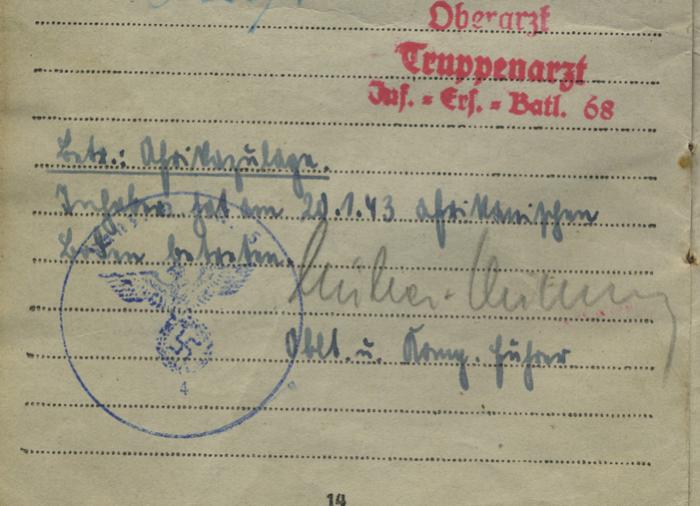 Oberarzt
Truppenarzt
Inf. = Ers. = Batl. 68
Betr.: Afrikazulage.
Inhaber hat am 20.1.43 afrikanischen
Boden betreten.
Oblt. u. Komp. Führer
4
14